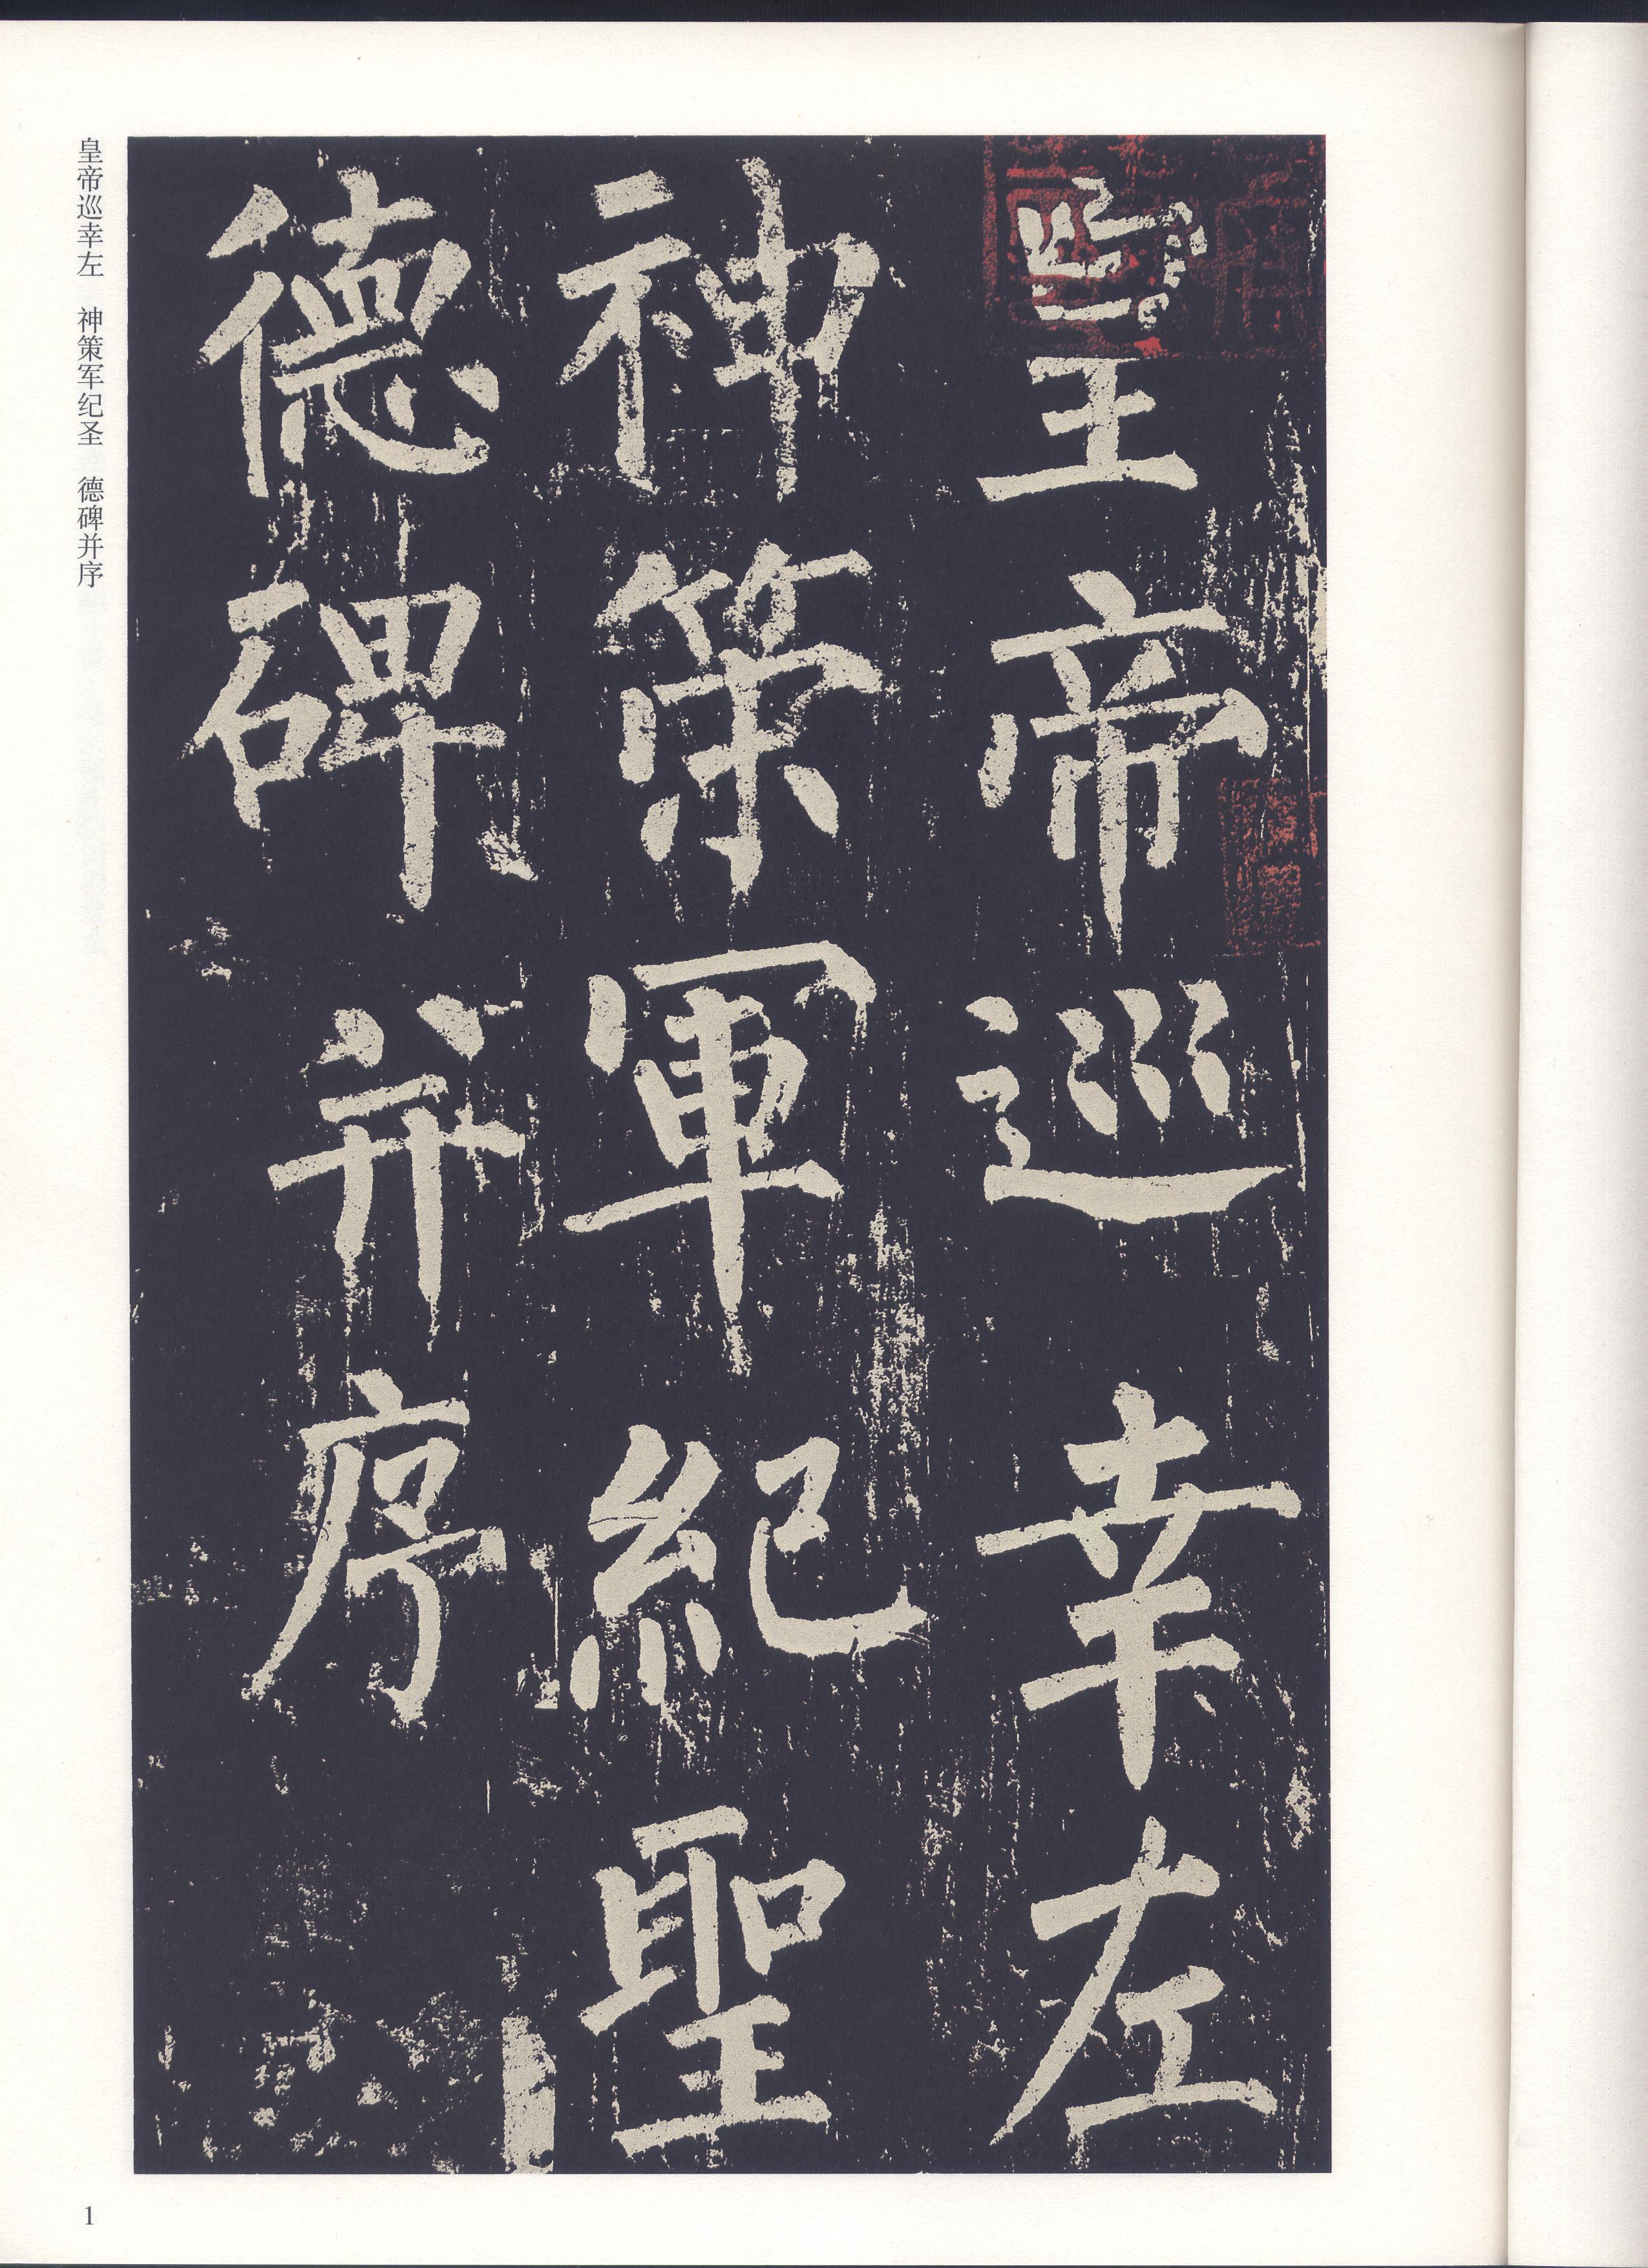 皇帝巡幸左
神策軍紀聖
德碑并序
皇帝巡幸左　神策军纪圣　德碑并序
1